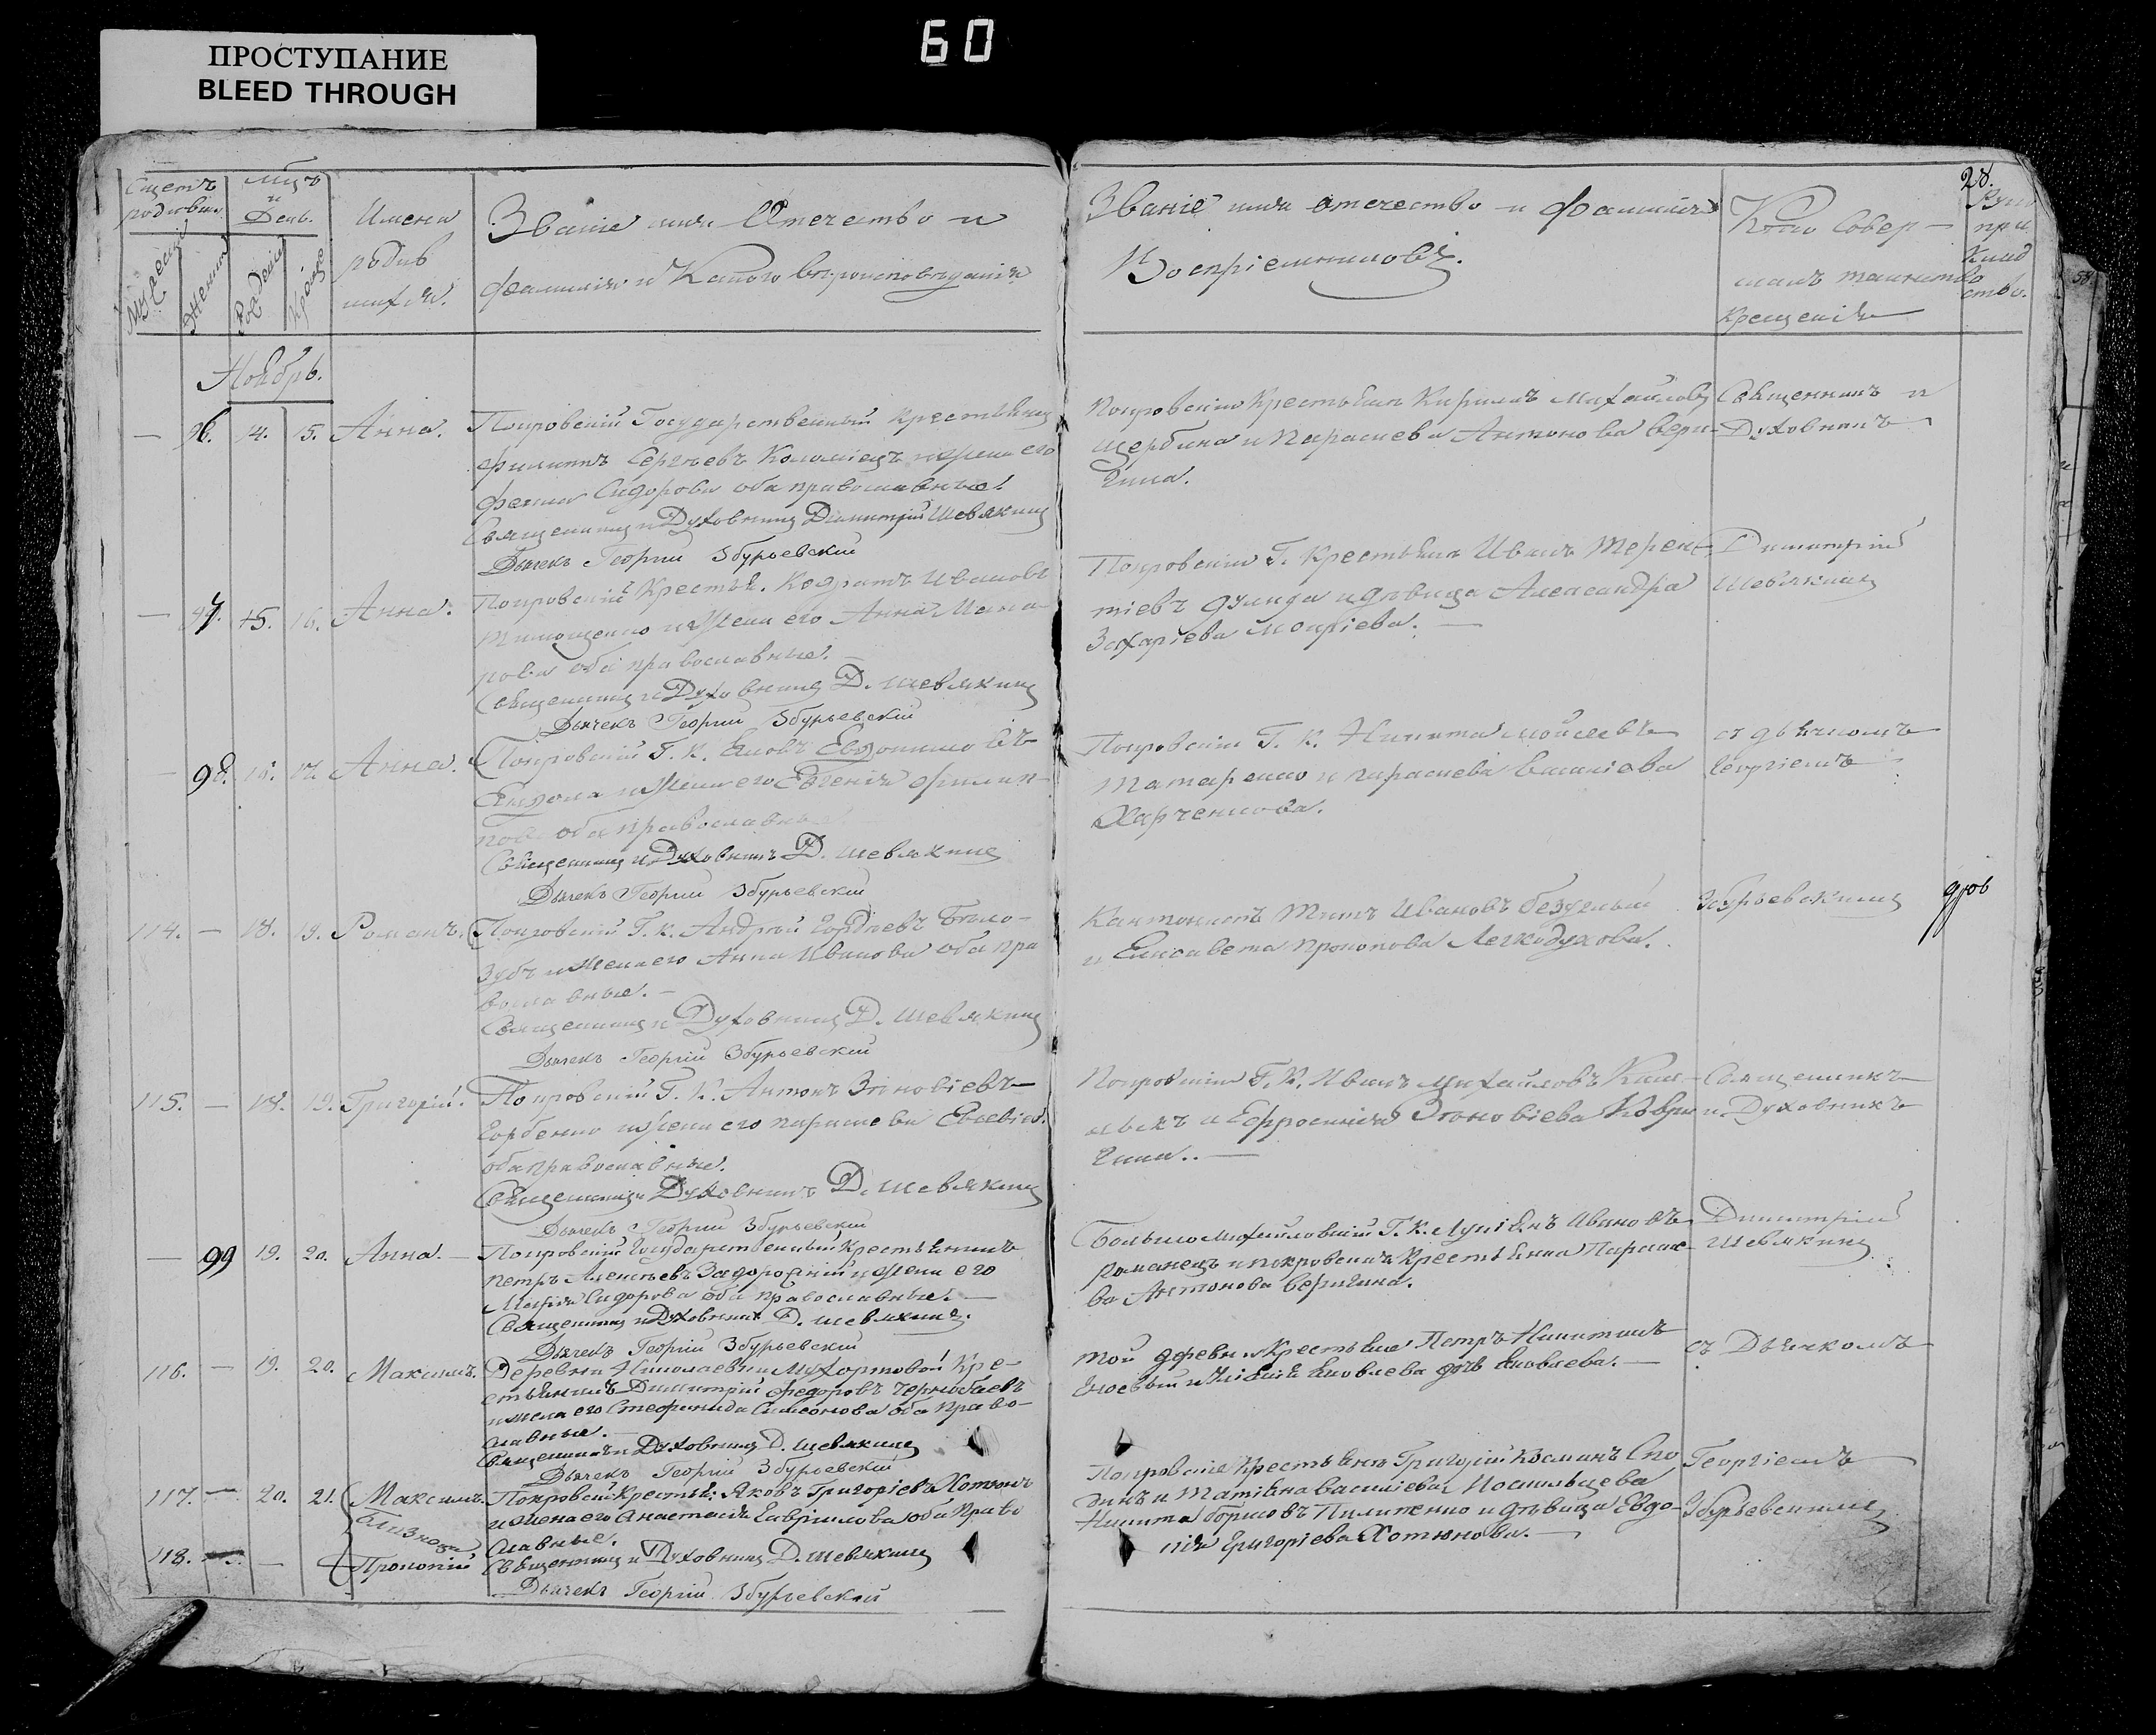 60
ПРОСТУПАНИЕ
BLEED THROUGH
28.
Счетъ
родивш.
Мцъ
и
День.
Имена
родив
шихся.
Званіе имя Отечество и
фамилія и Какого вѣроисповѣданія
Ноябрь.
— 96. 14. 15. Анна.
Покровскій Государственный крестьянинъ
Филиппъ Сергѣевъ Коломіецъ и жена его
Сидорова оба православные.
Священникъ и Духовникъ Димитрій Шевякинъ
Дьячекъ Георгій Збурьевскій
— 97. 15. 16. Анна.
Покровскій Крестья. Кодратъ Ивановъ
Тимощенко и жена его Анна
рова оба православные.
Священникъ и Духовникъ Д. Шевякинъ
Дьячекъ Георгій Збурьевскій
— 98. 16. 17. Анна.
Покровскій Г. К. Яковъ Евдокимовъ
и жена его Евгенія Филип-
пова оба православные
Священникъ и Духовникъ Д. Шевякинъ
Дьячекъ Георгій Збурьевскій
114. — 18. 19. Романъ.
Покровскій Г. К. Андрей Гордѣевъ Бѣло-
зубъ и жена его Анна Иванова оба пра
вославные. —
Священникъ и Духовникъ Д. Шевякинъ
Дьячекъ Георгій Збурьевскій
115. — 18. 19. Григорій.
Покровскій Г. К. Антонъ Зѣновіевъ
Горбенко и жена его Параскева Евсевіева
оба православные.
Священникъ и Духовникъ Д. Шевякинъ
Дьячекъ Георгій Збурьевскій
— 99 19. 20. Анна. —
Покровскій Государственный Крестьянинъ
Петръ Алексѣевъ Задорожній и жена его
Марія Сидорова оба православные. —
Священникъ и Духовникъ Д. Шевякинъ.
Дьячекъ Георгій Збурьевскій
116. — 19. 20. Максимъ.
Деревни Николаевки Мухортовой Кре-
стьянинъ Димитрій Федоровъ Чернобаевъ
и жена его Стефанида Симеонова оба право-
славные. —
Священникъ и Духовникъ Д. Шевякинъ
Дьячекъ Георгій Збурьевскій
117. — 20. 21. Максимъ.
Близнецы
118. — Прокопій
Покровскій Крестья. Яковъ Григоріевъ Хотюнъ
и жена его Анастасія Гаврилова оба право
славные.
Священникъ и Духовникъ Д. Шевякинъ
Дьячекъ Георгій Збурьевскій
Званіе имя отечество и фамилія
Воспріемниковъ.
Покровскій Крестьянинъ Кирилъ Михайловъ
Щербина и Параскева Антонова Вери-
гина.
Покровскій Г. Крестьянинъ Иванъ Терен-
тіевъ и дѣвица Александра
Захаріева Мокріева. —
Покровскій Г. К. Никита Мойсеевъ
Татаренко и Параскева Василіева
Харченкова.
Кантонистъ Титъ Ивановъ
и Елисавета Прокопова Легкодухова.
Покровскій Г. К. Иванъ Михайловъ
и Ефросинія Зѣновіева
Большо Михайловскій Г. К. Лукіянъ Ивановъ
Романецъ и покровская Крестьянка Параске-
ва Антонова Веригина.
той деревни Крестьяне Петръ Никитинъ
и Яковлева дочь Яковлева. —
Покровскіе Крестьяне Григорій Козминъ
и Татіяна Василіева
Никита Борисовъ Пилипенко и дѣвица Евдо-
кія Григоріева Хотюнова. —
Кто совер-
шалъ таинство
крещенія
Священникъ и
Духовникъ
Димитрій
Шевякинъ
съ дьячкомъ
Георгіемъ
Збурьевскимъ
Священникъ
и Духовникъ
Димитрій
Шевякинъ
съ Дьячкомъ
Георгіемъ
Збурьевскимъ